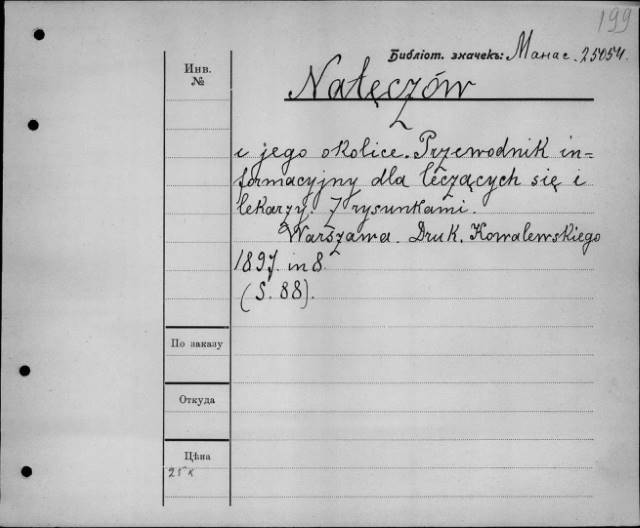 199
Библіот. значекъ: Манас. 25054.
Инв.
№
Nałęczów
i jego okolice. Przewodnik in=
formacyjny dla leczących się i
lekarzy. Z rysunkami.
Warszawa. Druk. Kowalewskiego
1897. in 8.
(S. 88).
По заказу
Откуда
Цѣна
25 к